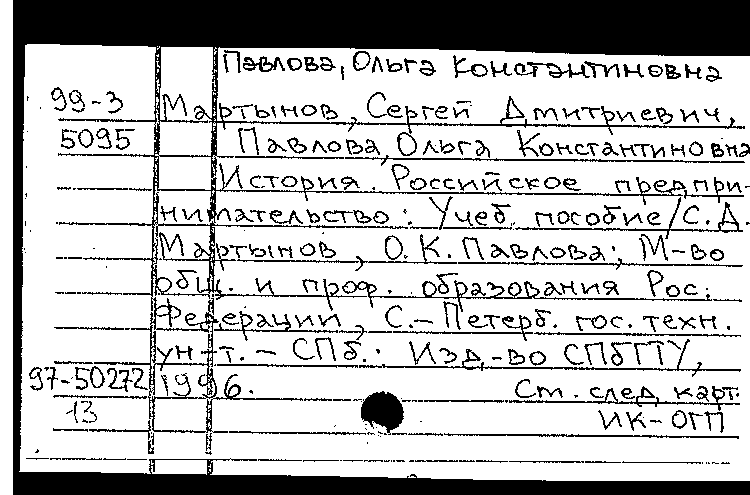 Павлова, Ольга Константиновна
99-3 Мартынов, Сергей Дмитриевич,
5095 Павлова, Ольга Константиновна
История. Российское предпри-
нимательство: Учеб. пособие/С.Д.
Мартынов, О.К. Павлова; М-во
общ. и проф. образования Рос.
Федерации, С.-Петерб. гос. техн.
ун-т. - СПб.: Изд-во СПбГТУ,
97-50272 1996. Ст. след. карт.
13 ИК-ОГП